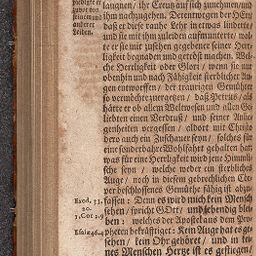 prediget er
zuvor von
seinem und
anderer
Leiden.
laugnen / ihr Creutz auf sich zu nehmen / und
ihm nachzugehen. Detenwegen der HErr
daß er diese rauhe Lehr in etwas linderte
und sie mit ihm zuleiden aufmunterte / wol-
te er sie mit zusehen gegebener seiner Herr-
ligkeit begnaden und getröst machen. Wel-
che Herrligkeit oder Glori / wenn sie nur
obenhin und nach Fähigkeit sterblicher Au-
gen entworffen / der traurigen Gemüther
so vermöchte zuergetzen / daß Petrus / als
hätte er ob allem Weltwesen und allen Ge-
liebten einen Verdruß / und seiner Anle-
genheit vergessen / aldort mit Christo
dero auch ein Zuschauer seyn / solches für
eine sonderbahre Wohlfahrt gehalten hat:
was für eine Herrligkeit wird jene Himmli-
sche seyn / welche weder ein sterbliches
Auge / noch in diesem gebrechlichen Cör-
per beschlossenes Gemüthe fähig ist abzu-
fassen: Denn es wird mich kein Mensch
sehen / spricht GOtt / und lebendig blei-
ben: welches der Apostel aus dem Pro-
pheten bekräfftiget: Kein Auge hat es ge-
sehen / kein Ohr gehöret / und in kei-
nes Menschen Hertze ist es gestiegen /
Exod. 33.
20.
1. Cor. 2. 9
Esaiæ 64. 4